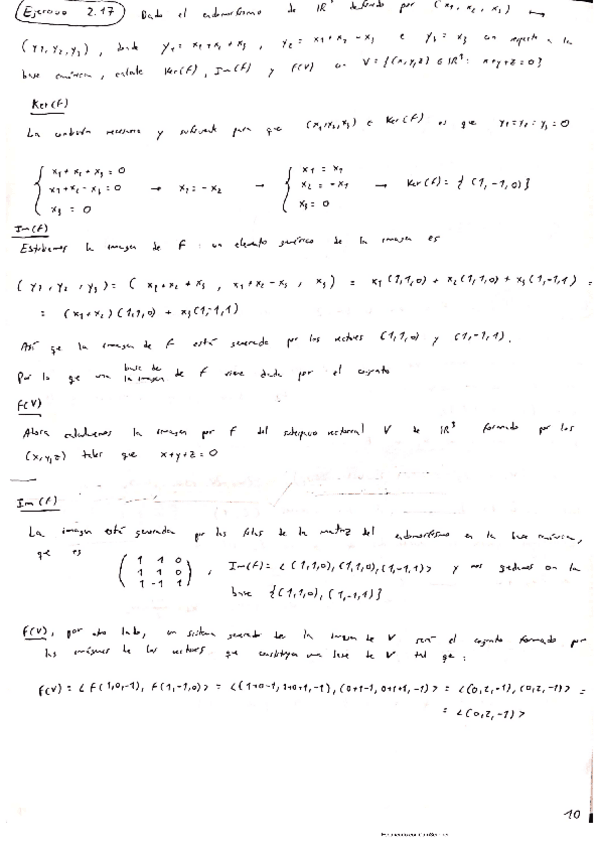 Ejercicio 2.17 Dado el endomorfismo de IR³ definido por (x₁, x₂, x₃) ↦
(y₁, y₂, y₃), donde y₁ = x₁ + x₂ + x₃, y₂ = x₁ + x₂ - x₃ e y₃ = x₃ con respecto a la
base canónica, calcule Ker(f), Im(f) y f(V) con V = {(x,y,z) ∈ IR³: x+y+z=0}
Ker(f)
La condición necesaria y suficiente para que (x₁,x₂,x₃) ∈ Ker(f) es que y₁=y₂=y₃=0
{ x₁ + x₂ + x₃ = 0 { x₁ = x₁
x₁ + x₂ - x₃ = 0 → x₁ = -x₂ → x₂ = -x₁ → Ker(f) = { (1,-1,0)}
x₃ = 0 x₃ = 0
Im(f)
la imagen de f un elemento genérico de la imagen es
(y₁, y₂, y₃) = (x₁+x₂+x₃, x₁+x₂-x₃, x₃) = x₁(1,1,0) + x₂(1,1,0) + x₃(1,-1,1) =
= (x₁+x₂)(1,1,0) + x₃(1,-1,1)
Así que la imagen de f está generada por los vectores (1,1,0) y (1,-1,1).
Por lo que una base de la imagen de f viene dada por el conjunto
f(V)
Ahora calculamos la imagen por f del subespacio vectorial V de IR³ formado por los
(x,y,z) tales que x+y+z=0
Im(f)
La imagen está generada por las filas de la matriz del endomorfismo en la base canónica,
que es
( 1 1 0
1 1 0
1 -1 1 ), Im(f) = <(1,1,0),(1,1,0),(1,-1,1)> y nos quedamos con la
base {(1,1,0),(1,-1,1)}
f(V), por otro lado, un sistema generador de la imagen de V será el conjunto formado por
las imágenes de los vectores que constituyen una base de V tal que:
f(V) = <f(1,0,-1), f(1,-1,0)> = <(1+0-1, 1+0+1, -1), (0+1-1, 0+1+1, -1)> = <(0,2,-1),(0,2,-1)> =
= <(0,2,-1)>
10